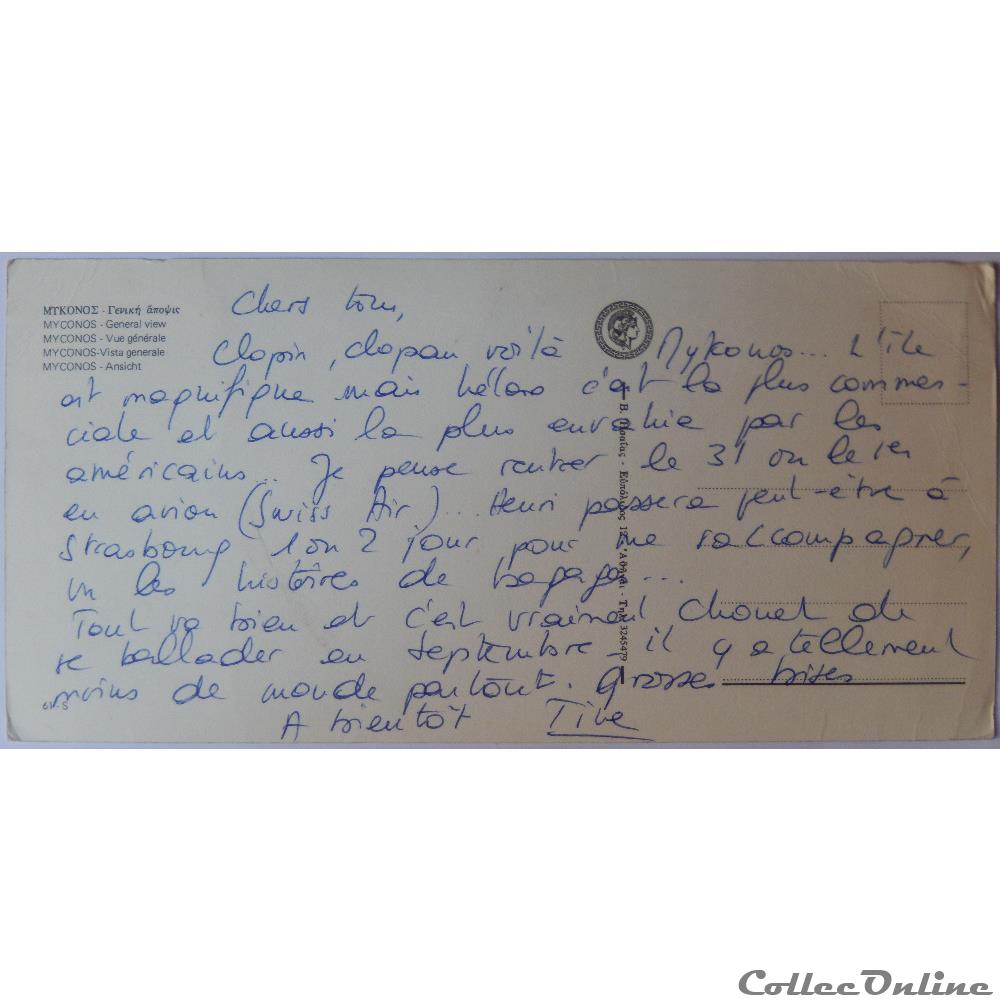 ΜΥΚΟΝΟΣ - Γενική άποψις
MYCONOS - General view
MYCONOS - Vue générale
MYCONOS-Vista generale
MYCONOS - Ansicht
Chers tous,
Clopin, clopan voilà Mykonos... L'île
est magnifique mais hélas c'est la plus commer-
ciale et aussi la plus envahie par les
américains... Je pense rentrer le 31 ou le 1er
en avion (Swiss Air)... Henri passera peut-être à
Strasbourg 1 ou 2 jour pour me raccompagner,
vu les histoires de bagage...
Tout va bien et c'est vraiment chouet de
se ballader en septembre - il y a tellement
moins de monde partout. Grosses bises
A bientôt
61-S
Αθήναι - Τηλ. 3245479
CollecOnline